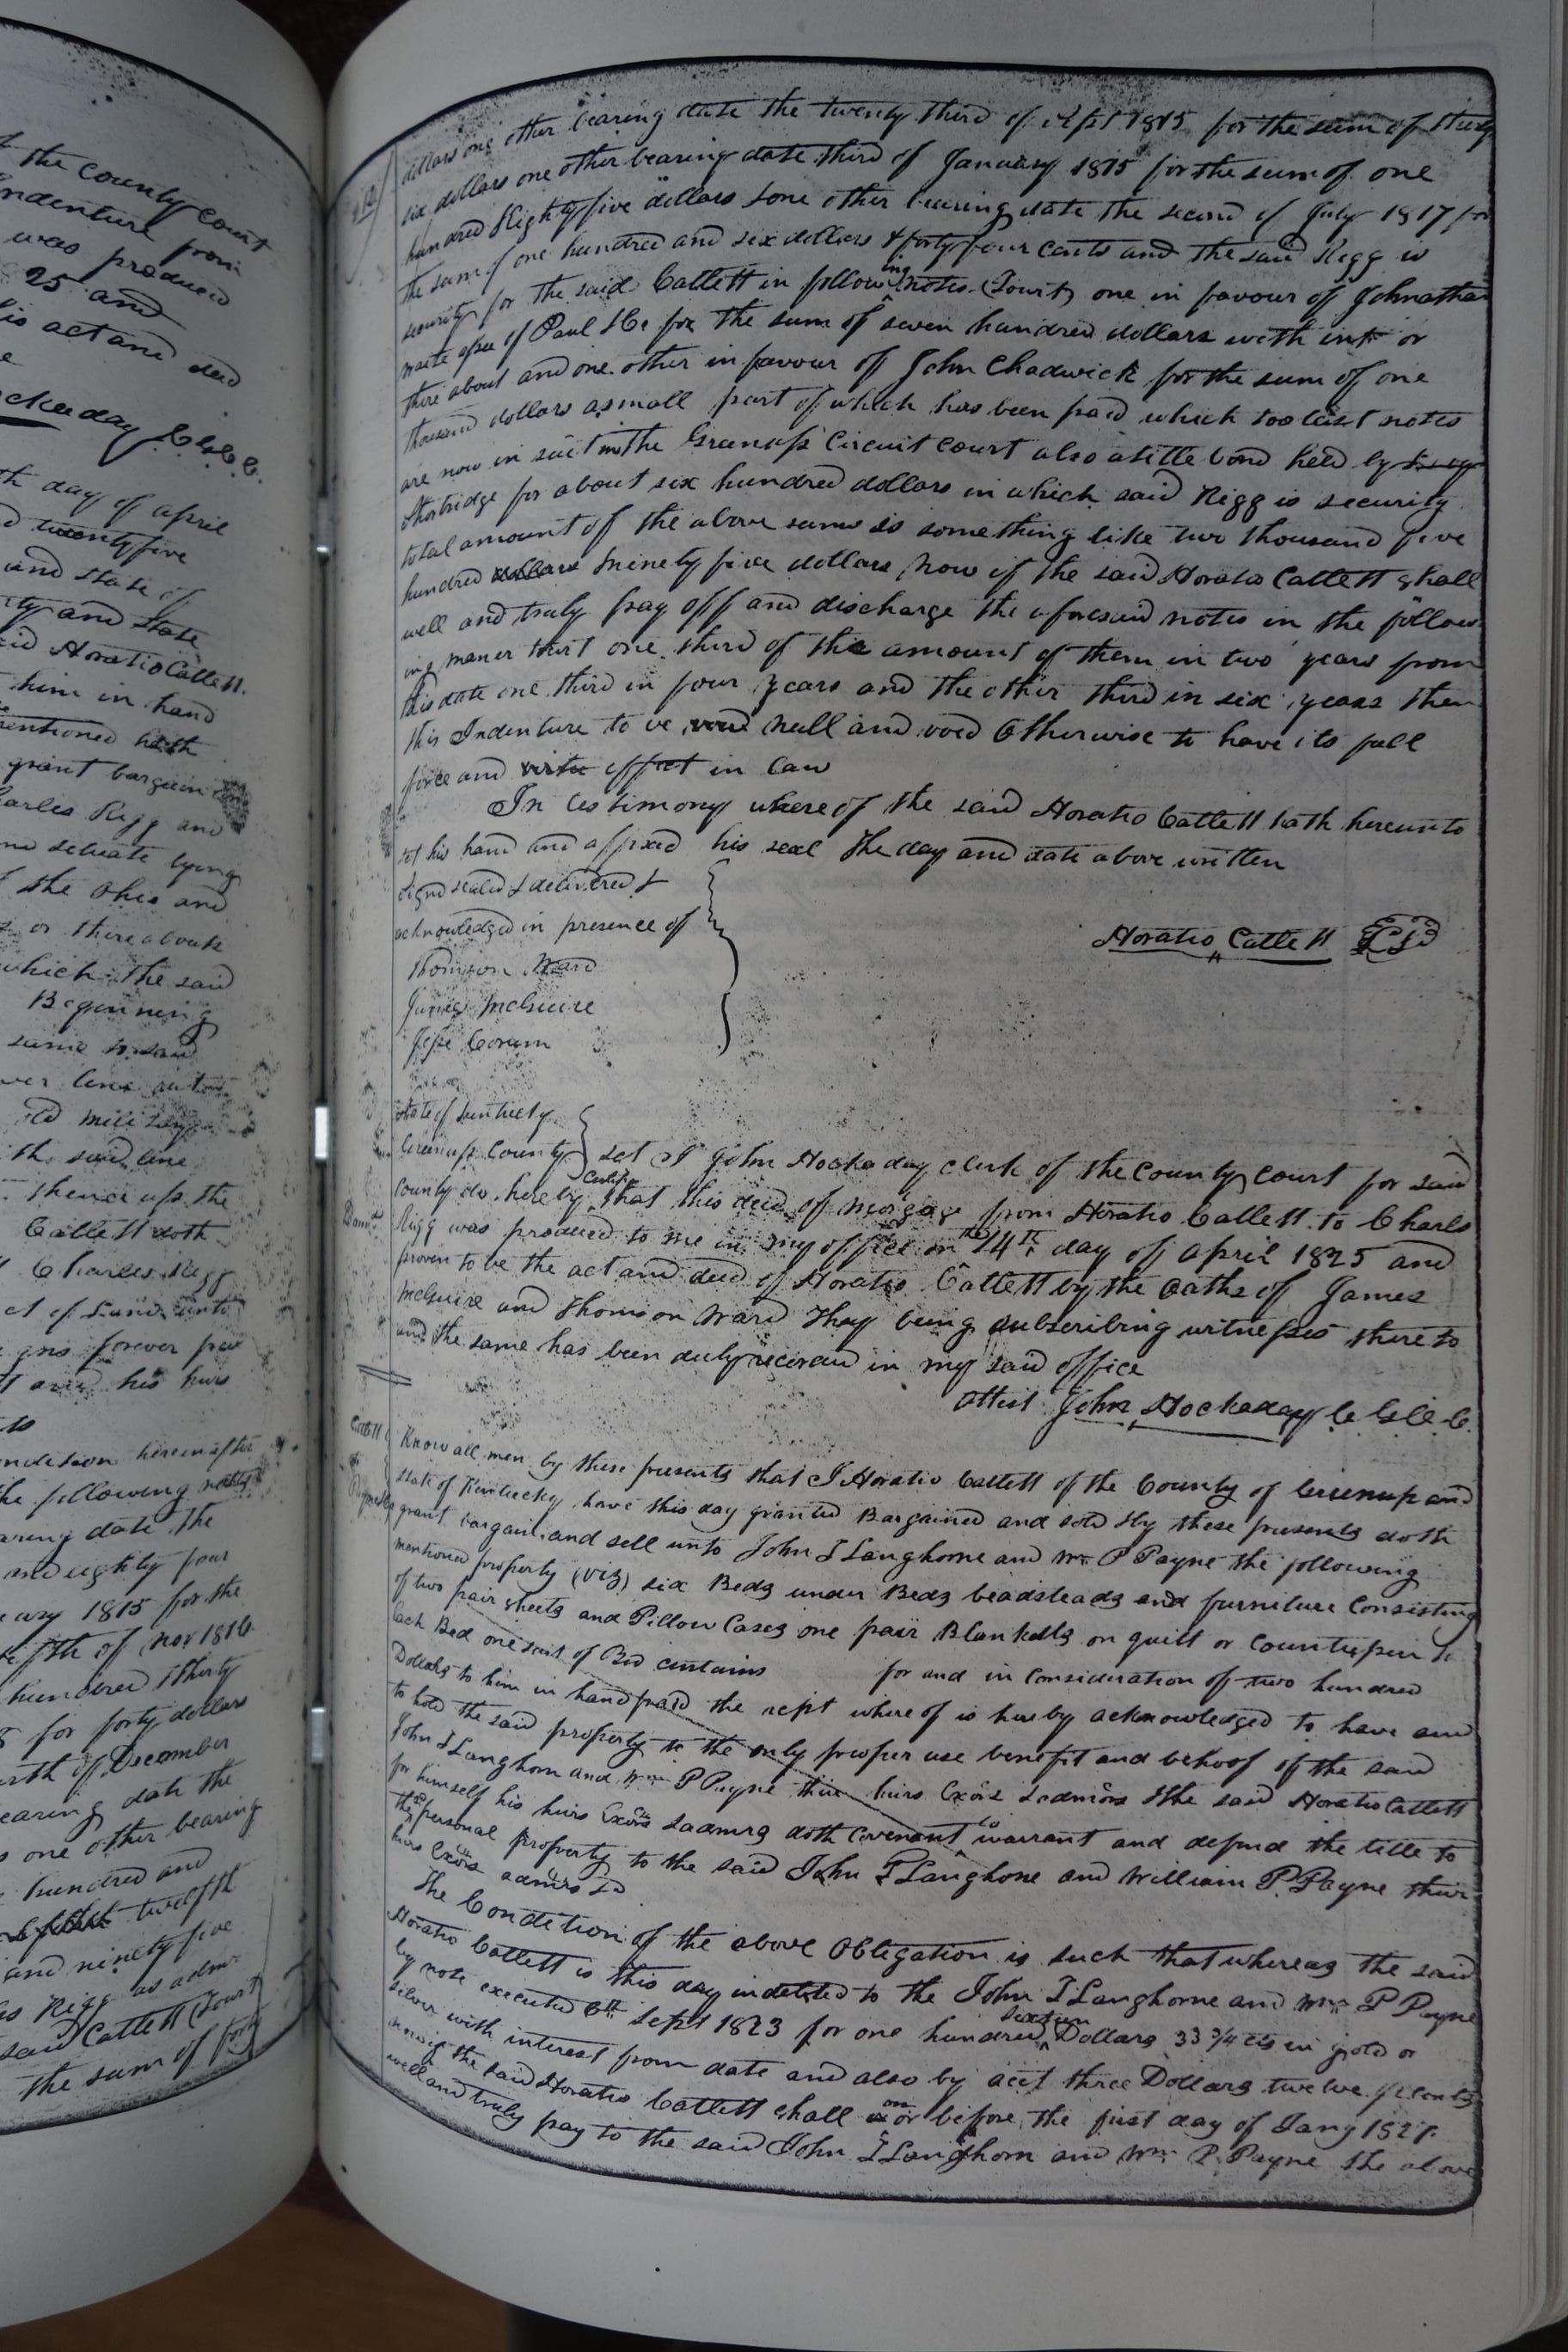 the County Court
Indenture from
was produced
25 and
his act and deed
Hockaday C.G.C.C.
th day of april
d twenty five
and State of
ty and State
said Horatio Catlett
him in hand
mentioned hath
grant bargain
Charles Rigg and
and setuate lying
the Ohio and
or there abouts
which the said
Beginning
same
ver line
ed military
ith said line
thence up the
Catlett doth
Charles Rigg
ct of Land unto
gns forever free
his heirs
to
condition hereinafter
the following notes
bearing date the
and eighty four
1815 for the
fth of Nov 1816
hundred & thirty
for forty dollars
of December
earing date the
one other bearing
hundred and
twelfth
and ninety five
Rigg as admr
said Catlett (Towit
the sum of forty
dollars one other bearing date the twenty third of Sept 1815 for the sum of thirty
six dollars one other bearing date third of January 1815 for the sum of one
hundred & Eighty five dollars & one other bearing date the second of July 1817 for
the sum of one hundred and six dollars & forty four cents and the said Rigg is
security for the said Catlett in following notes (Towit) one in favour of Johnathan
of Paul & Co for the sum of seven hundred dollars with int or
there about and one other in favour of John Chadwick for the sum of one
thousand dollars a small part of which has been paid which too last notes
are now in suit in the Greenup Circuit Court also a title bond held by
Shortridge for about six hundred dollars in which said Rigg is security
total amount of the above sums is something like two thousand five
hundred dollars & ninety five dollars Now if the said Horatio Catlett shall
well and truly pay off and discharge the aforesaid notes in the follow
ing maner towit one third of the amount of them in two years from
this date one third in four years and the other third in six years then
this Indenture to be void null and void Otherwise to have its full
force and virtue effect in law
In testimony whereof the said Horatio Catlett hath hereunto
set his hand and affixed his seal the day and date above written
Signd sealed & delivered &
acknowledged in presence of
Horatio Catlett
Thomson Ward
James McGuire
Jesse Corum
State of Kentucky
Greenup County Sct I John Hockaday clerk of the County Court for said
County do hereby Certify that this deed of morgage from Horatio Catlett to Charls
Rigg was produced to me in my office on the 24th day of april 1825 and
proven to be the act and deed of Horatio Catlett by the Oaths of James
McGuire and Thomson Ward They being subscribing witnesses thereto
and the same has been duly recorded in my said office
Attest John Hockaday C.G.C.C.
Catlett
Know all men by these presents that I Horatio Catlett of the County of Greenup and
State of Kentucky have this day granted Bargained and sold & by these presents doth
grant bargain and sell unto John I Langhorne and Wm P Payne the following
mentioned property (viz) six Beds under Beds beadsteads and furniture Consisting
of two pair sheets and Pillow Cases one pair Blanketts on quilt or Counterpin to
Each Bed one suit of Bed curtains for and in consideration of two hundred
Dollars to him in hand paid the rcpt where of is hereby acknowledged to have and
to hold the said property to the only proper use benefit and behoof of the said
John I Langhorn and Wm P Payne their heirs Exors & admors & the said Horatio Catlett
for himself his heirs Exors & admrs doth covenant to warrant and defend the title to
the sd personal property to the said John I Langhone and William P. Payne their
heirs Exors admrs &c
The Condition of the above Obligation is such that whereas the said
Horatio Catlett is this day indebted to the John I Langhorne and Wm P Payne
by note executed 6th Sept 1823 for one hundred sixteen Dollars 33 3/4 cts in gold or
silver with interest from date and also by acct three Dollars twelve
now if the said Horatio Catlett shall on or before the first day of Jany 1827
well and truly pay to the said John I Langhorn and Wm P. Payne the above